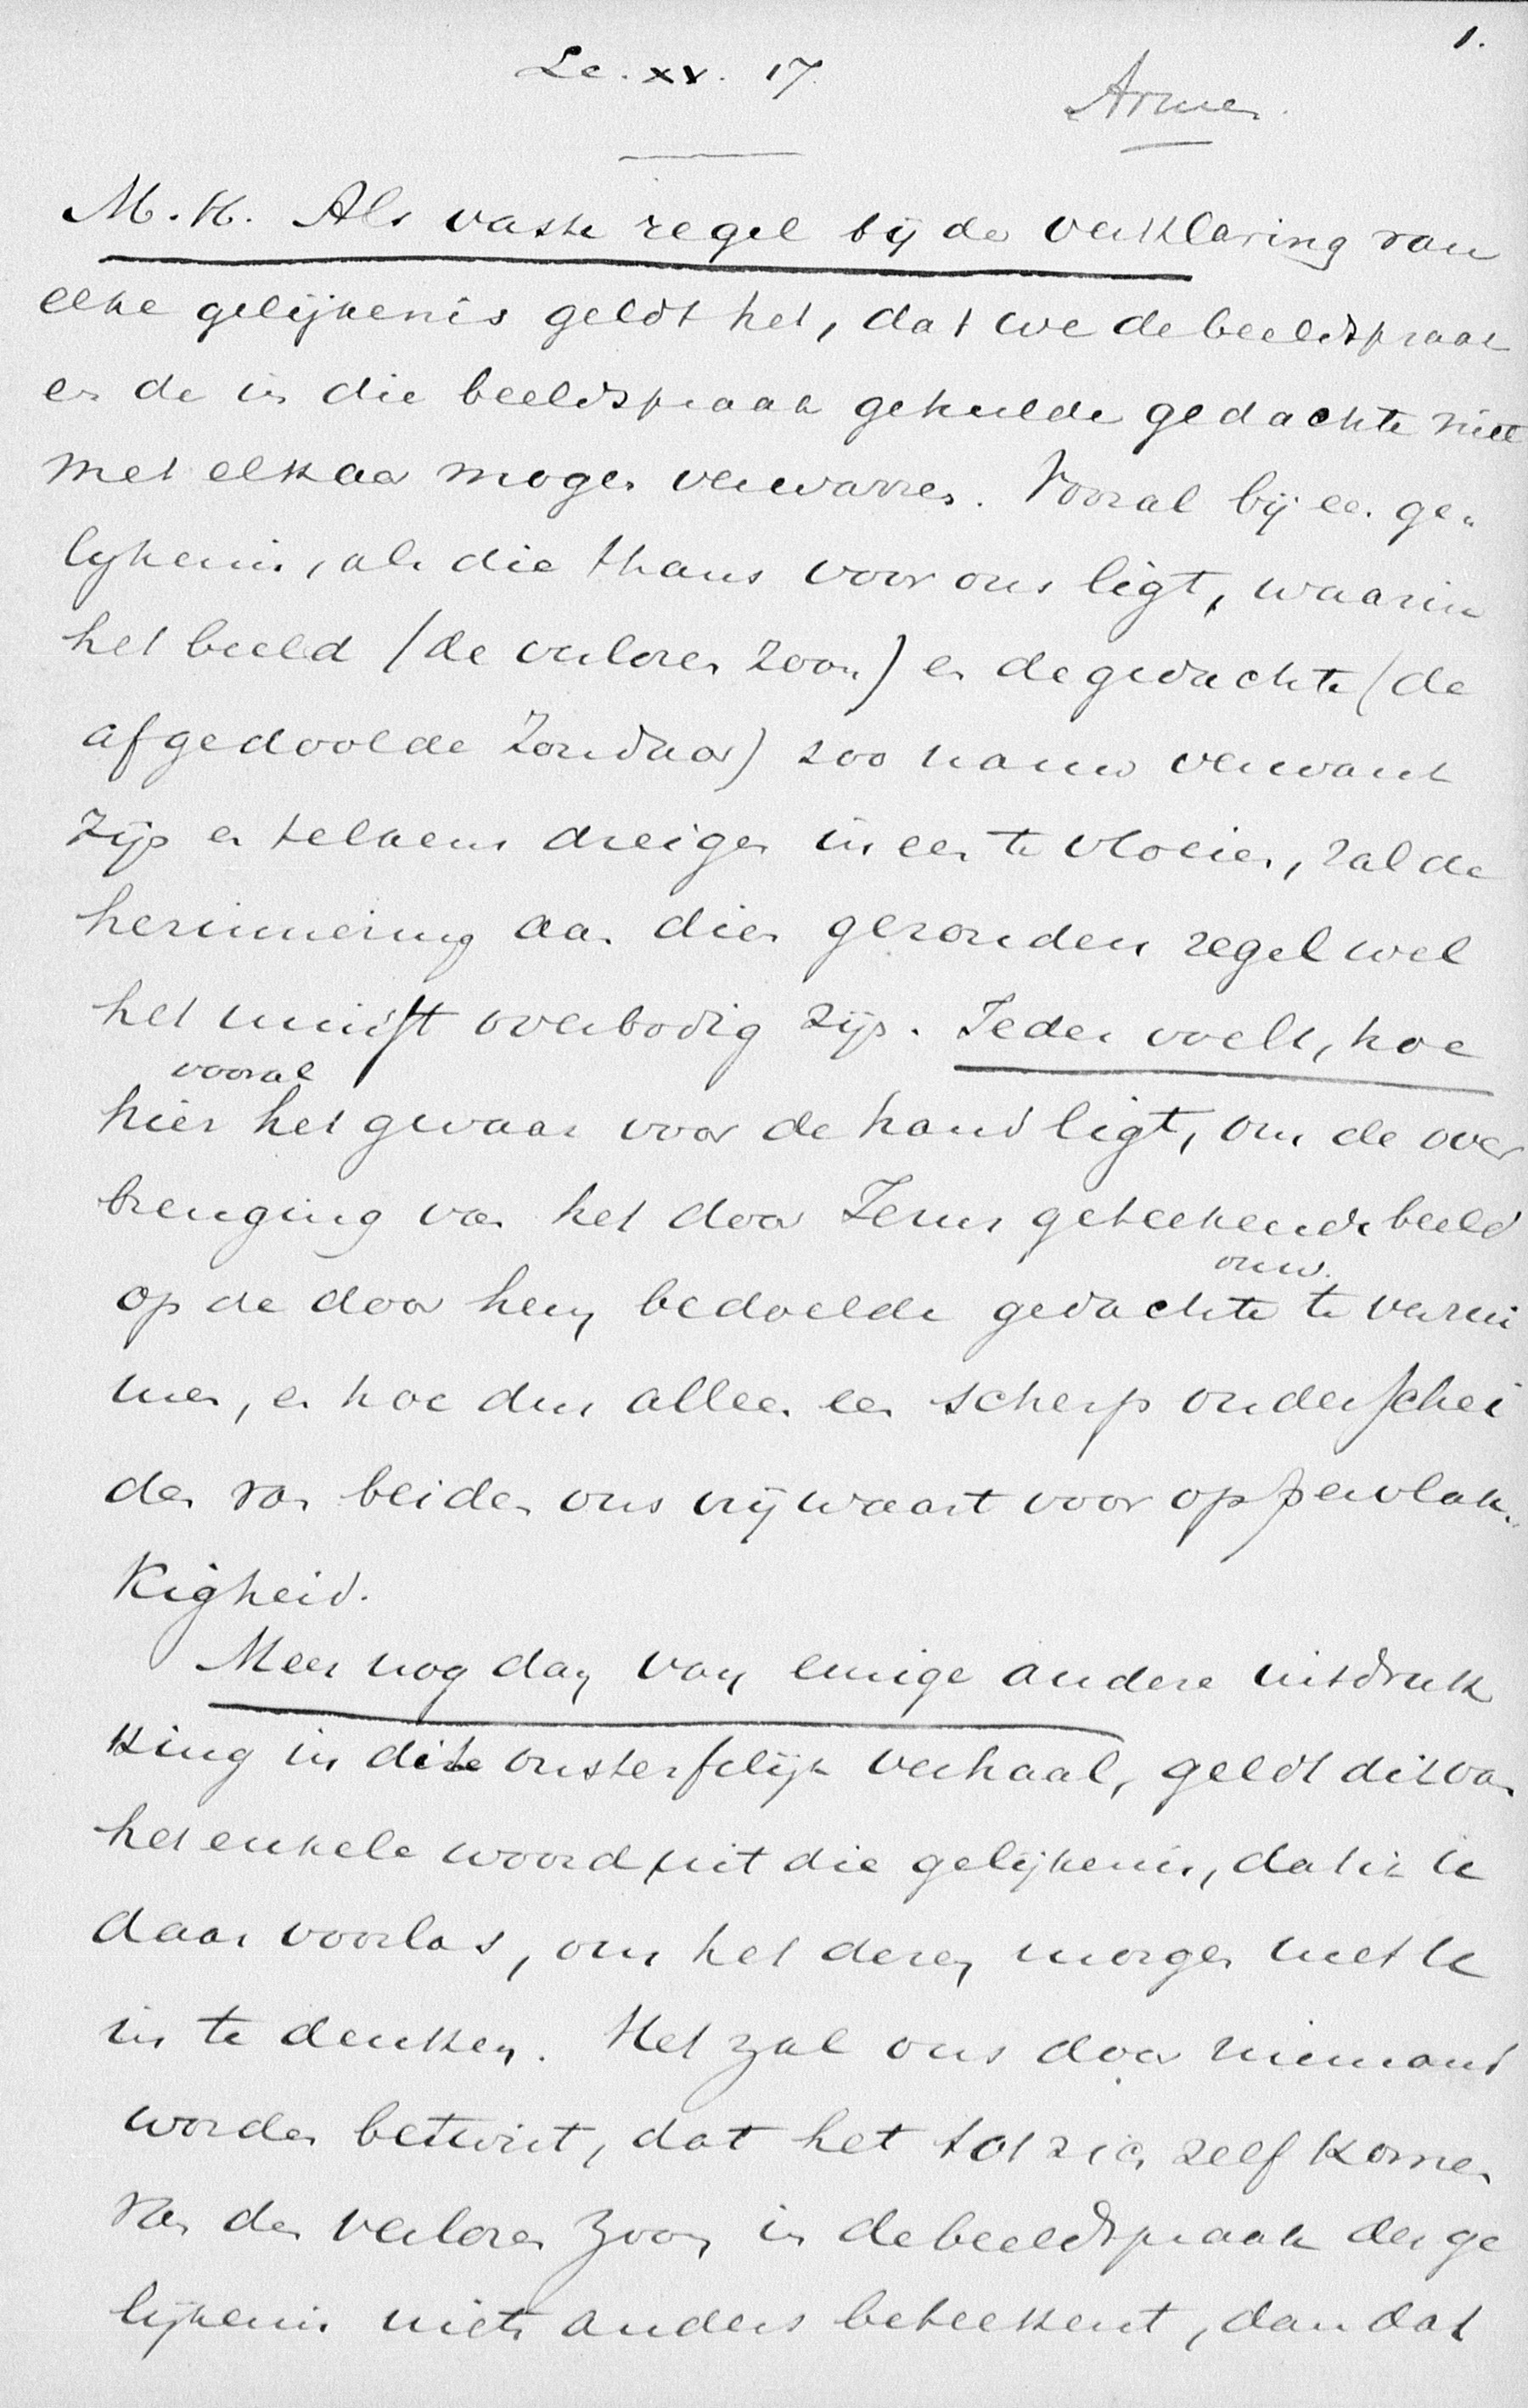 1.
Lc. XV. 17.
Armen.
M. H. Als vaste regel bij de verklaring van
elke gelijkenis geldt het, dat we de beeldspraak
en de in die beeldspraak gehulde gedachte niet
met elkaar mogen verwarren. Vooral bij een ge-
lijkenis, als die thans voor ons ligt, waarin
het beeld (de verloren zoon) en de gedachte (de
afgedoolde zondaar) zoo nauw verwant
zijn en telkens dreigen ineen te vloeien, zal de
herinnering aan dien gezonden regel wel
het minst overbodig zijn. Ieder voelt, hoe
vooral
hier het gevaar voor de hand ligt, om de over
brenging van het door Jezus geteekende beeld
onw.
op de door hem bedoelde gedachte te verzui
men, en hoe dus alleen een scherp onderschei
den van beiden ons vrijwaart voor oppervlak-
kigheid.
Meer nog dan van eenige andere uitdruk
king in dit onsterfelijk verhaal, geldt dit van
het enkele woord uit die gelijkenis, dat ik u
daar voorlas, om het dezen morgen met u
in te denken. Het zal ons door niemand
worden betwist, dat het tot zich zelf komen
van den verloren zoon in de beeldspraak der ge
lijkenis niets anders beteekent, dan dat